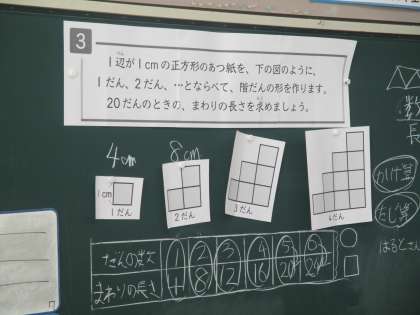 3
1辺が1cmの正方形のあつ紙を、下の図のように、
1だん、2だん、…とならべて、階だんの形を作ります。
20だんのときの、まわりの長さを求めましょう。
4cm
8cm
1cm
1だん
2だん
3だん
4だん
だんの数 1 2 3 4 5 6 ○
まわりの長さ 4 8 12 16 20 24 □
数
長
かけ算
たし算
はるとさん